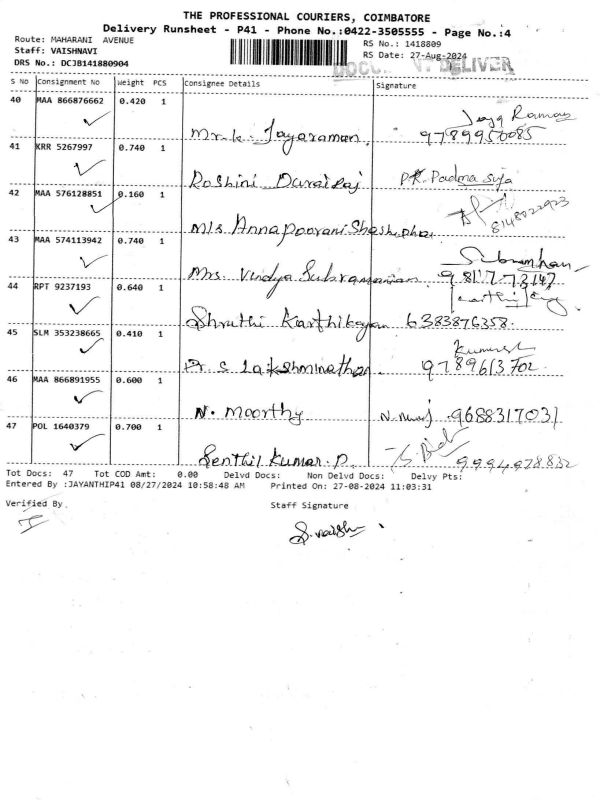 THE PROFESSIONAL COURIERS, COIMBATORE
Delivery Runsheet - P41 - Phone No.:0422-3505555 - Page No.:4
Route: MAHARANI AVENUE
RS No.: 1418809
Staff: VAISHNAVI
RS Date: 27-Aug-2024
DRS No.: DCJB141880904
DELIVER
S No Consignment No Weight PCS Consignee Details Signature
40 MAA 866876662 0.420 1
Mr. K. Jayaraman. 9789950085
41 KRR 5267997 0.740 1
Roshini Durairaj P.K. Padma Suja
42 MAA 576128851 0.160 1
M/s. Annapoorani 8148022923
43 MAA 574113942 0.740 1
Mrs. Vindya Subramanian.
44 RPT 9237193 0.640 1
Shruthi Karthikeyan 6383876358.
45 SLM 353238665 0.410 1
Dr. S. Lakshminathan. 9789613702
46 MAA 866891955 0.600 1
N. Moorthy 9688317031
47 POL 1640379 0.700 1
Senthil Kumar. P. 9994978832
Tot Docs: 47 Tot COD Amt: 0.00 Delvd Docs: Non Delvd Docs: Delvy Pts:
Entered By :JAYANTHIP41 08/27/2024 10:58:48 AM Printed On: 27-08-2024 11:03:31
Verified By. Staff Signature
S. vaish